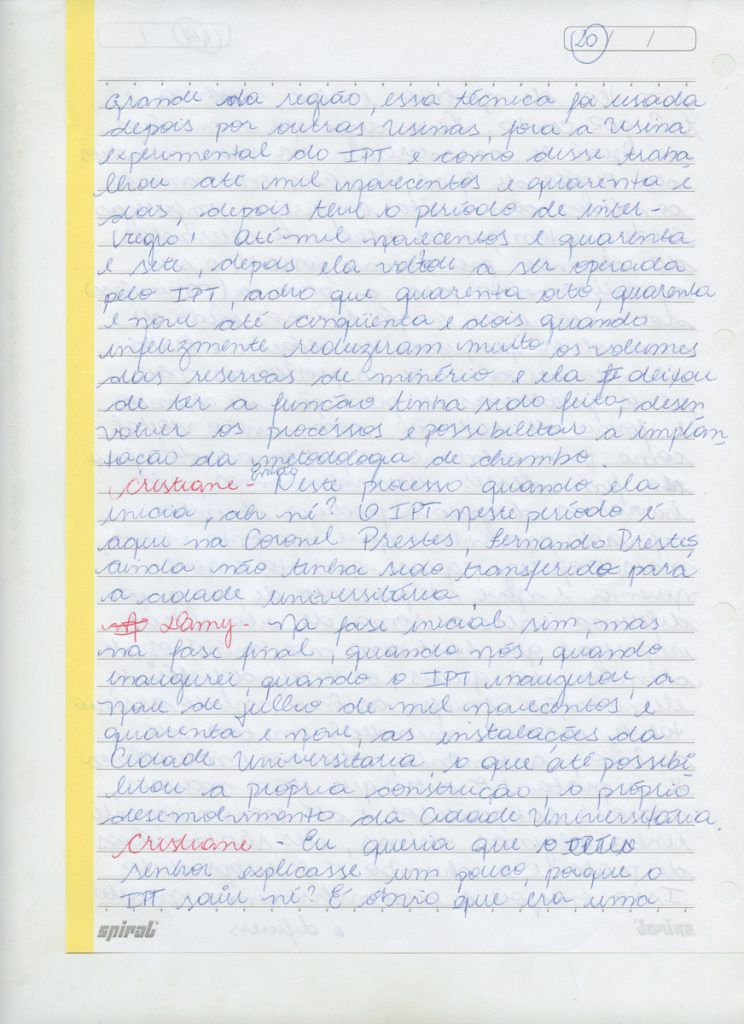 20 / /
grande da região, essa técnica foi usada
depois por outras usinas, fora a usina
experimental do IPT e como disse traba
lhou até mil novecentos e quarenta e
dois, depois teve o período de inter-
regno, até mil novecentos e quarenta
e sete, depois ela voltou a ser operada
pelo IPT, acho que quarenta oito, quarenta
e nove até cinqüenta e dois quando
infelizmente reduziram muito os volumes
das reservas de minério e ela deixou
de ter a função tinha sido feita, desen
volver os processos e possibilitar a implan
tação da metodologia de chumbo.
Cristiane - então Neste processo quando ela
inicia, ah né? O IPT neste período é
aqui na Coronel Prestes, Fernando Prestes
ainda não tinha sido transferido para
a cidade universitária
Damy - Na fase inicial sim, mas
na fase final, quando nós, quando
inaugurei, quando o IPT inaugurou, a
nove de julho de mil novecentos e
quarenta e nove, as instalações da
Cidade Universitária, o que até possibi
litou a própria construção, o próprio
desenvolvimento da Cidade Universitária.
Cristiane - Eu queria que o
senhor explicasse um pouco, porque o
IPT saiu né? É óbvio que era uma
spiral